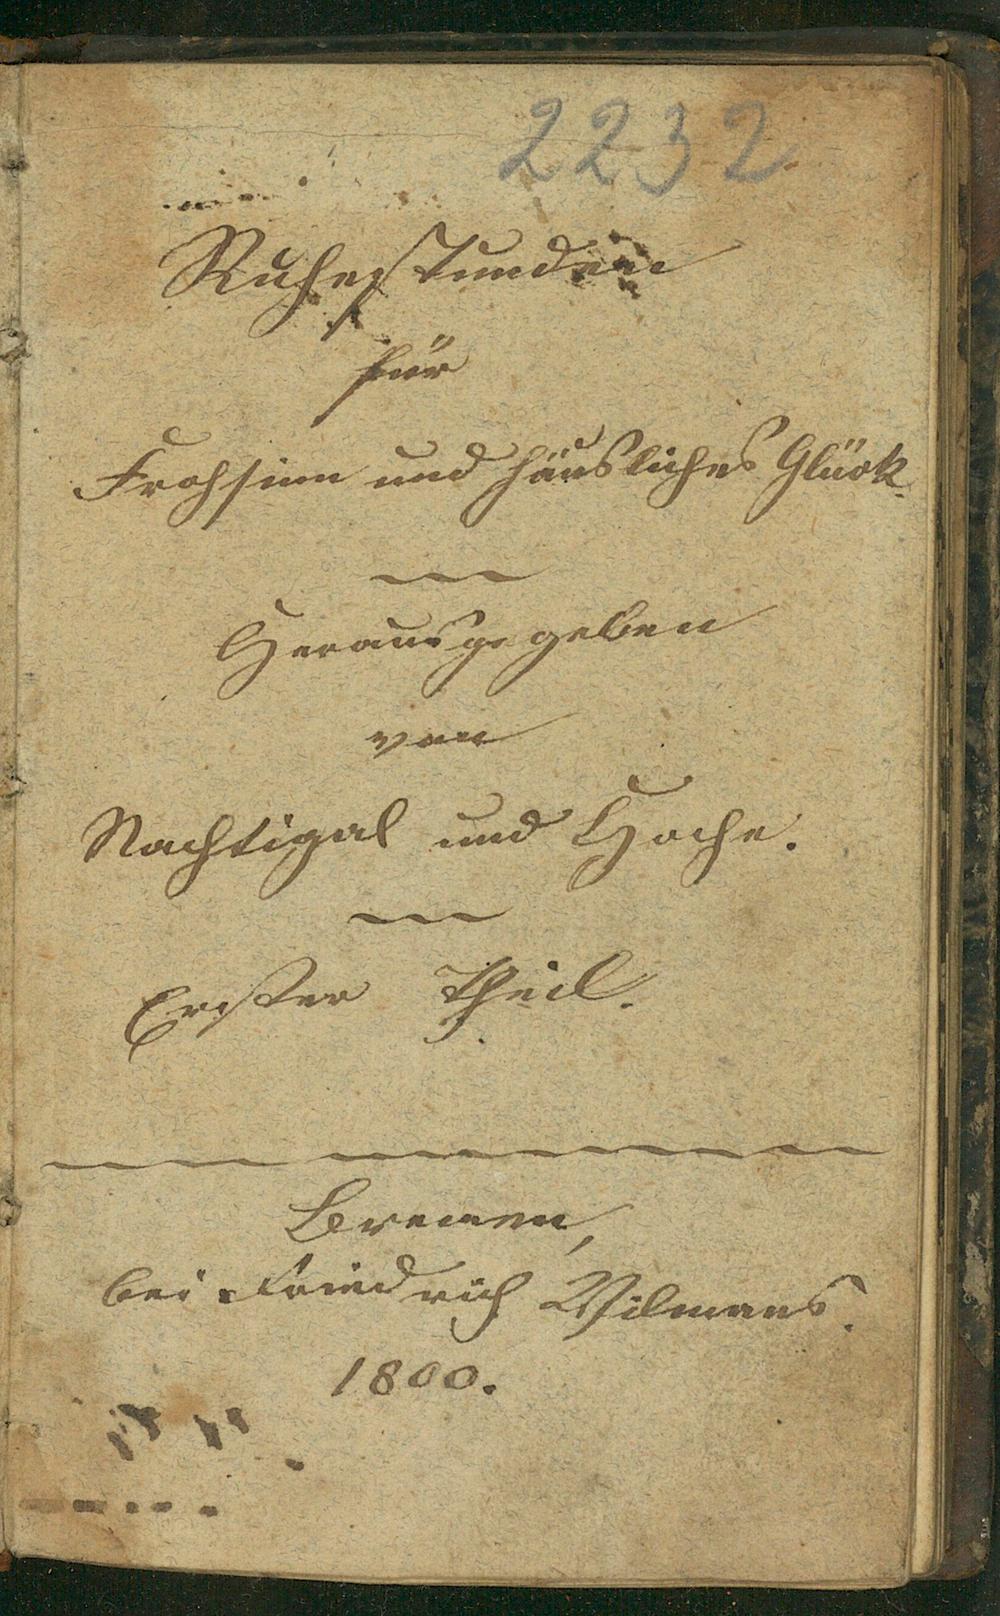 2232
Ruhestunden
für
Frohsinn und häusliches Glück.
Herausgegeben
von
Nachtigal und Hoche.
Erster Theil.
Bremen,
bei Friedrich Wilmans.
1800.